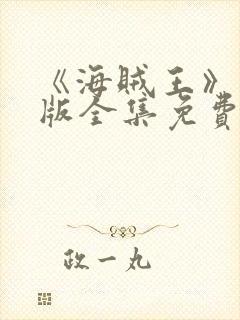 《海贼王》
版全集免费
政一丸